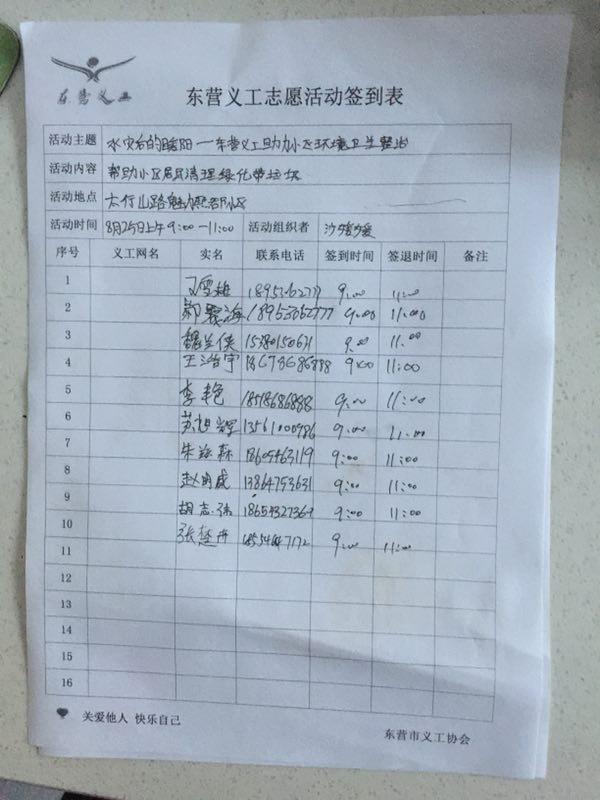 东营义工
东营义工志愿活动签到表
活动主题 水灾后的暖阳一东营义工助力小区环境卫生整治
活动内容 帮助小区居民清理绿化带垃圾
活动地点 太行山路魅力熙郡小区
活动时间 8月25日上午9:00一11:00 活动组织者 沙媛媛
序号 义工网名 实名 联系电话 签到时间 签退时间 备注
1 9:00 11:00
2 9:00 11:00
3 9:00 11:00
4 王浩宇 9:00 11:00
5 李艳 9:00 11:00
6 苏旭辉 13561000986 9:00 11:00
7 朱 18605463119 9:00 11:00
8 赵明威 13864753631 9:00 11:00
9 胡志强 9:00 11:00
10 张楚卉 9:00 11:00
11
12
13
14
15
16
关爱他人 快乐自己
东营市义工协会